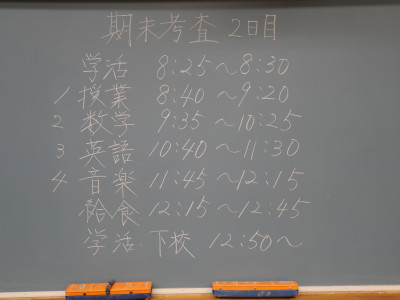 期末考査 2日目
学活 8:25〜8:30
1 授業 8:40〜9:20
2 数学 9:35〜10:25
3 英語 10:40〜11:30
4 音楽 11:45〜12:15
給食 12:15〜12:45
学活 下校 12:50〜